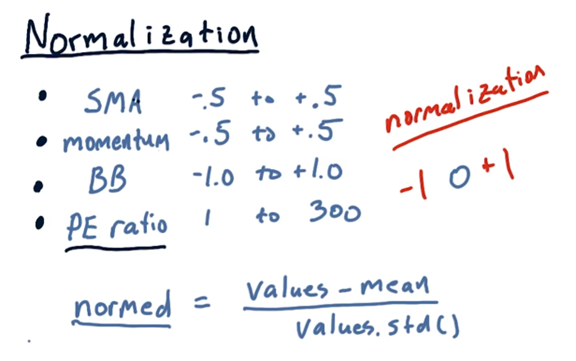 Normalization
• SMA -.5 to +.5
• momentum -.5 to +.5
• BB -1.0 to +1.0
• PE ratio 1 to 300
normalization
-1 0 +1
normed = values - mean / values.std()